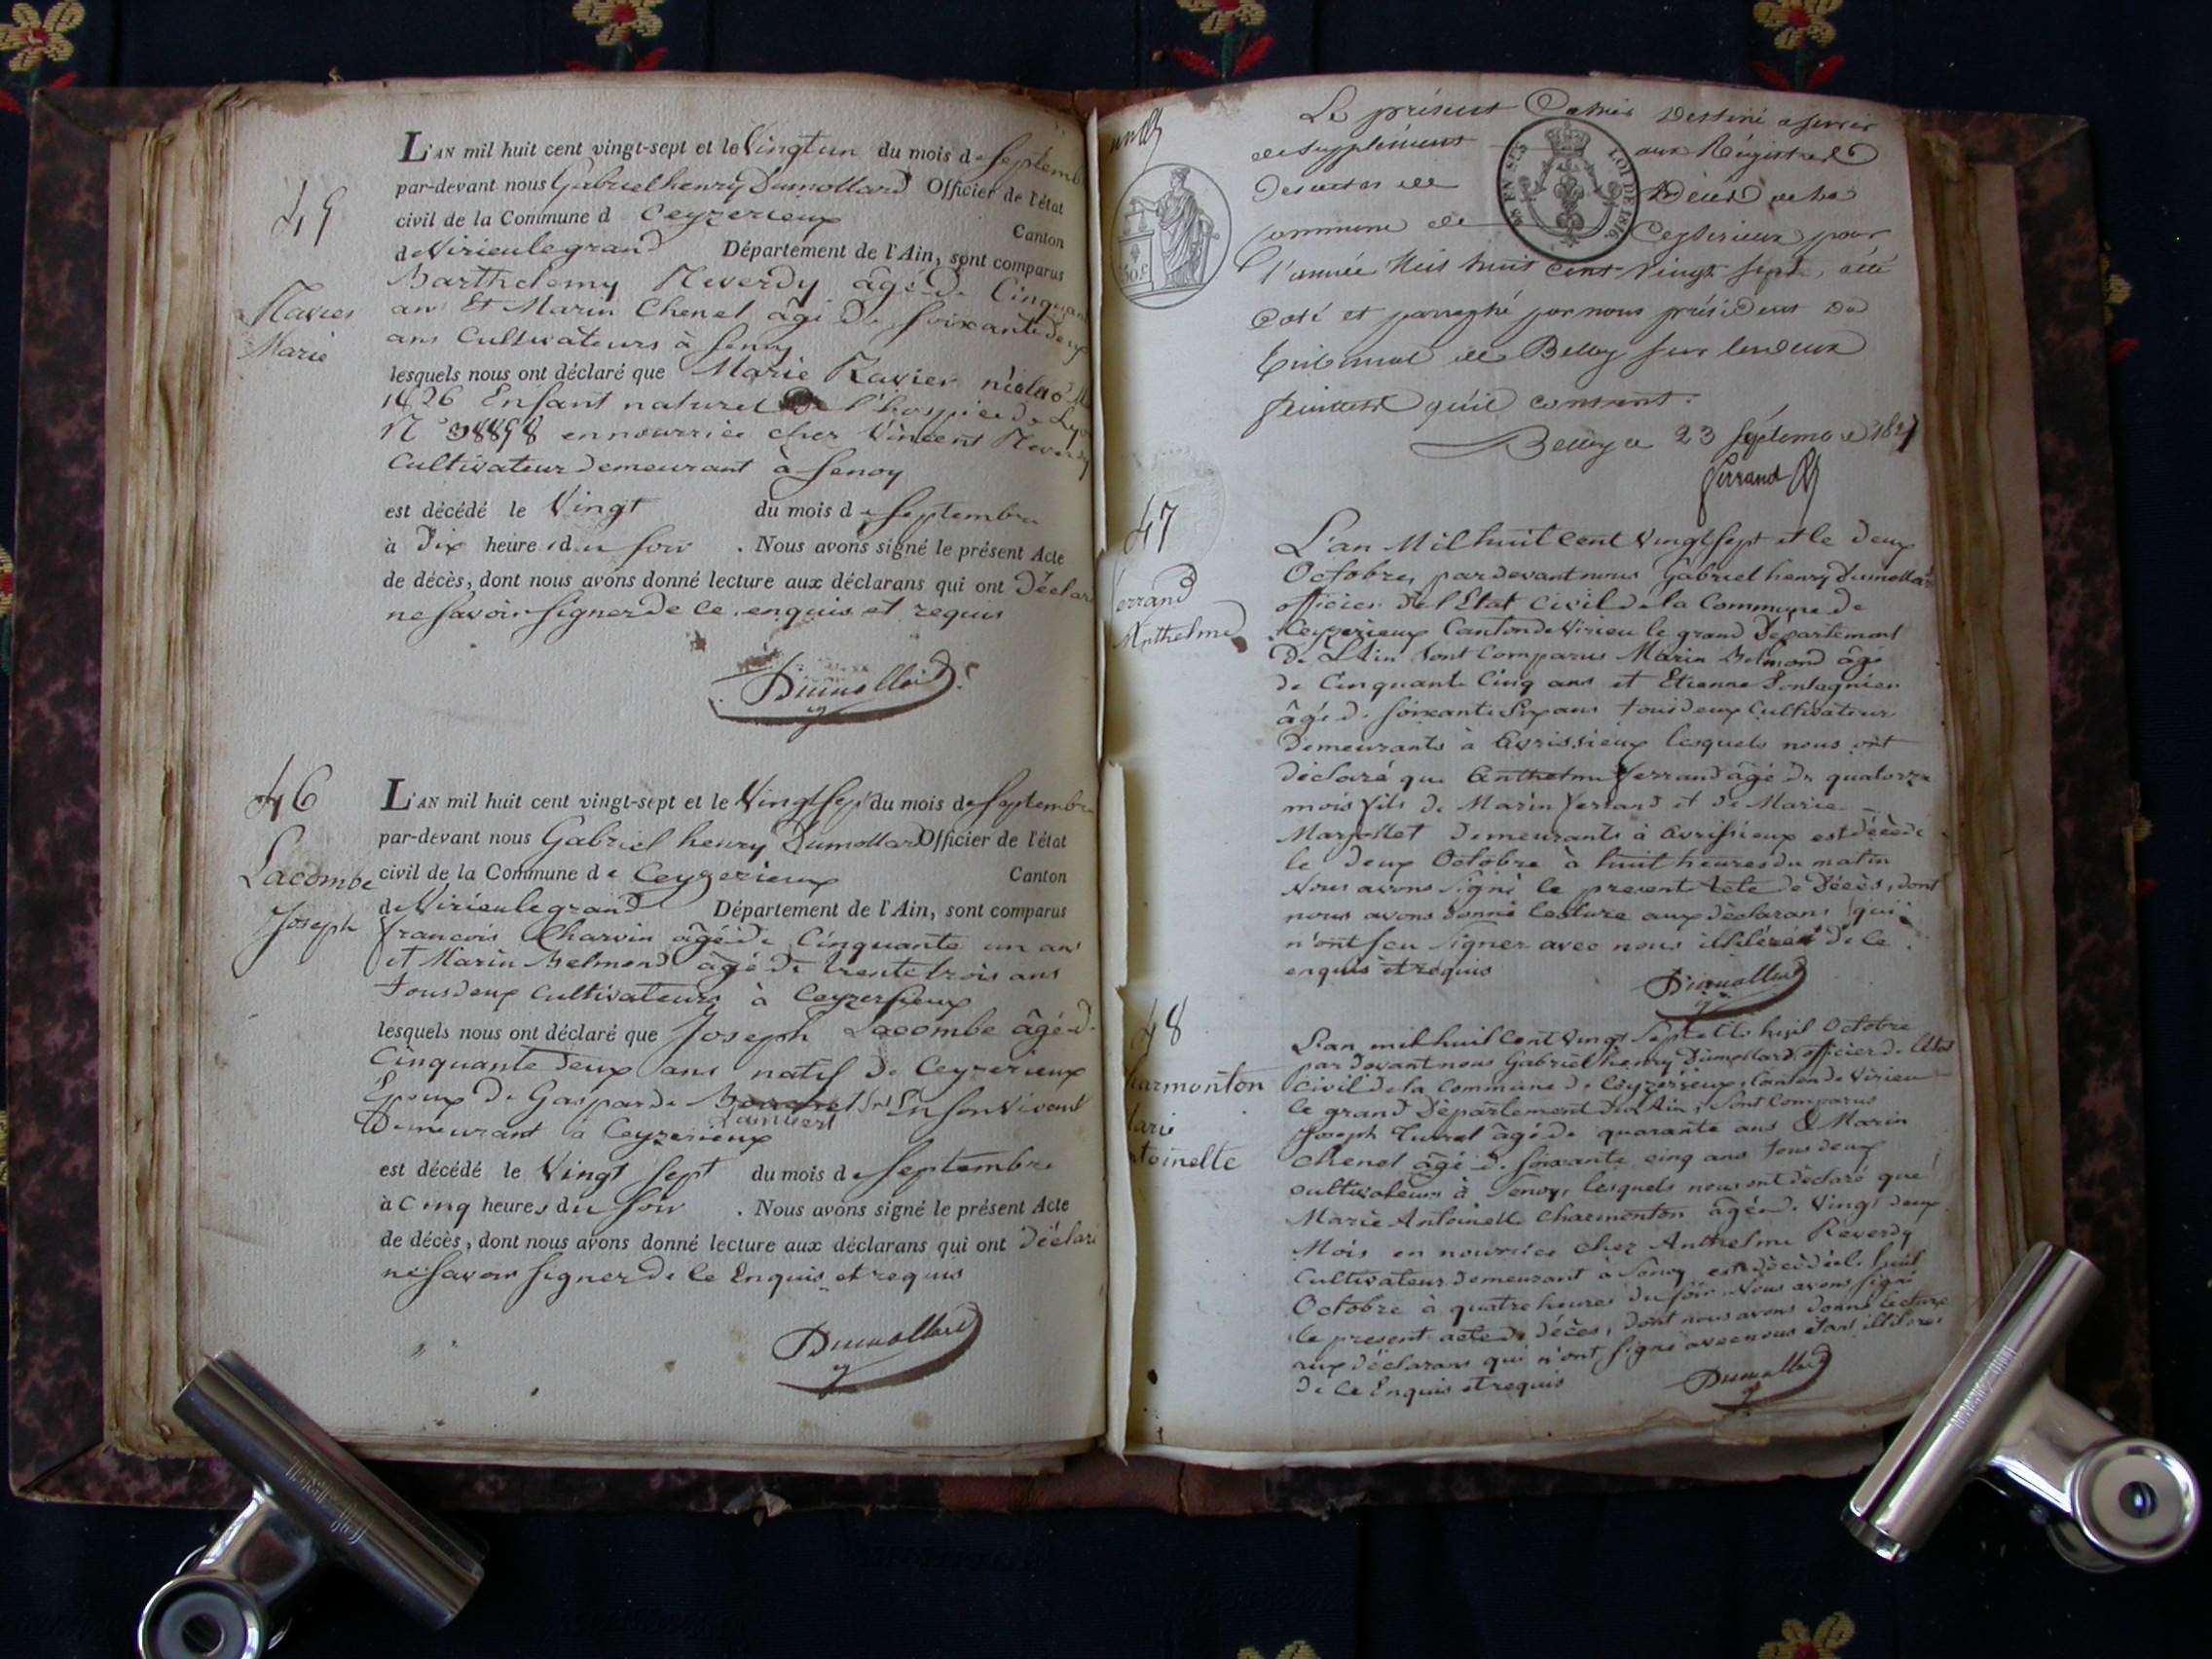 45
Ravier
Marie
L'AN mil huit cent vingt-sept et le Vingt un du mois de Septemb
par-devant nous Gabriel henry Dumollard Officier de l'état
civil de la Commune d Ceyzerieux Canton
de Virieu le grand Département de l'Ain, sont comparus
Barthelemy Reverdy âgé de Cinquan
ans Et Marin Chenel âgé de Soixante deux
ans Cultivateurs à Senoy
lesquels nous ont déclaré que Marie Ravier née le
1826 Enfant naturel de l'hospice de Lyo
N° en nourrice chez Vincent Reverdy
Cultivateur demeurant à Senoy
est décédé le Vingt du mois de Septembre
à Dix heures du Soir . Nous avons signé le présent Acte
de décès, dont nous avons donné lecture aux déclarans qui ont Déclar
ne Savoir Signer de ce enquis et requis
Dumollard
46
Lacombe
Joseph
L'AN mil huit cent vingt-sept et le Vingt Sept du mois de Septembre
par-devant nous Gabriel henry Dumollard Officier de l'état
civil de la Commune de Ceyzerieux Canton
de Virieu le grand Département de l'Ain, sont comparus
francois Charvin âgé de Cinquante un ans
et Marin Belmond âgé de trente trois ans
tous deux Cultivateurs à Ceyzerieux
lesquels nous ont déclaré que Joseph Lacombe âgé d
Cinquante deux ans natif de Ceyzerieux
Epoux de Gasparde En Son Vivant
Demeurant à Ceyzerieux
est décédé le Vingt Sept du mois de Septembre
à Cinq heures du Soir . Nous avons signé le présent Acte
de décès, dont nous avons donné lecture aux déclarans qui ont Déclaré
ne Savoir Signer de Ce Enquis et requis
Dumollard
Le présent Cahier Destiné a servir
de Supplément aux Régistres
des actes de Décès de la
Commune de Ceyserieux pour
l'année Mil huit cent vingt sept, a été
Coté et paraphé par nous président du
tribunal de Belley sur les deux
feuillets qu'il contient.
Belley ce 23 Septembre 1827
ferrand
LOI DE 1816.
50 C
47
ferrand
Anthelme
L'an Mil huit Cent Vingt Sept et le Deux
Octobre, par devant nous Gabriel henry Dumollar
officier de l'Etat Civil de la Commune de
Ceyzerieux Canton de Virieu le grand Département
De L'Ain Sont Comparus Marin Belmond âgé
de Cinquante Cinq ans et Etienne
âgé de Soixante Six ans tous deux Cultivateur
Demeurants à Avrissieux lesquels nous ont
déclaré que Anthelme ferrand âgé de quatorze
mois fils de Marin ferrand et de Marie
Marjollet Demeurants à Avrissieux est décédé
le Deux Octobre à huit heures du matin
Nous avons Signé le present Acte de Décès, dont
nous avons donné lecture aux déclarans qui
n'ont Seu Signer avec nous illitérés de Ce
enquis et requis
Dumollard
48
harmonton
arie
toinette
L'an mil huit Cent Vingt Sept et le huit Octobre
par devant nous Gabriel henry Dumollard officier de l'Etat
Civil de la Commune de Ceyzerieux, Canton de Virieu
le grand Département de L'Ain, Sont Comparus
Joseph âgé de quarante ans & Marin
Chenel âgé de Soixante cinq ans tous deux
Cultivateurs à Senoy, lesquels nous ont déclaré que
Marie Antoinette Charmonton âgée de Vingt deux
Mois en nourrice chez Anthelme Reverdy
Cultivateur demeurant à Senoy est décédée le huit
Octobre à quatre heures du Soir Nous avons Signé
le present acte de décès, dont nous avons donné lecture
aux déclarans qui n'ont Signé avec nous étant illitéres
de Ce Enquis et requis
Dumollard